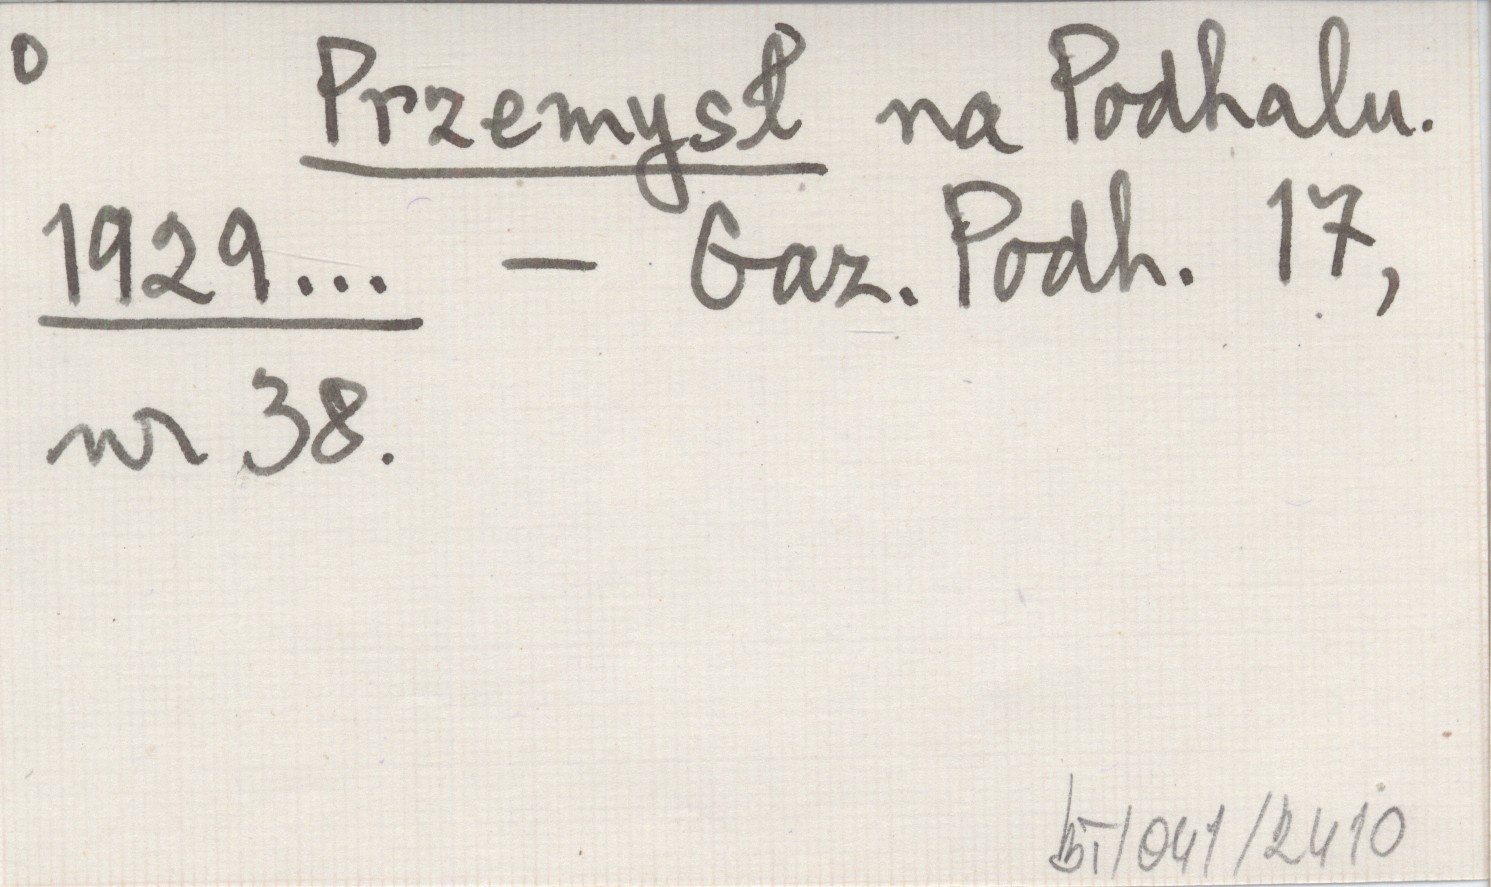 o Przemysł na Podhalu.
1929... — Gaz. Podh. 17,
nr 38.
BT/041/2410